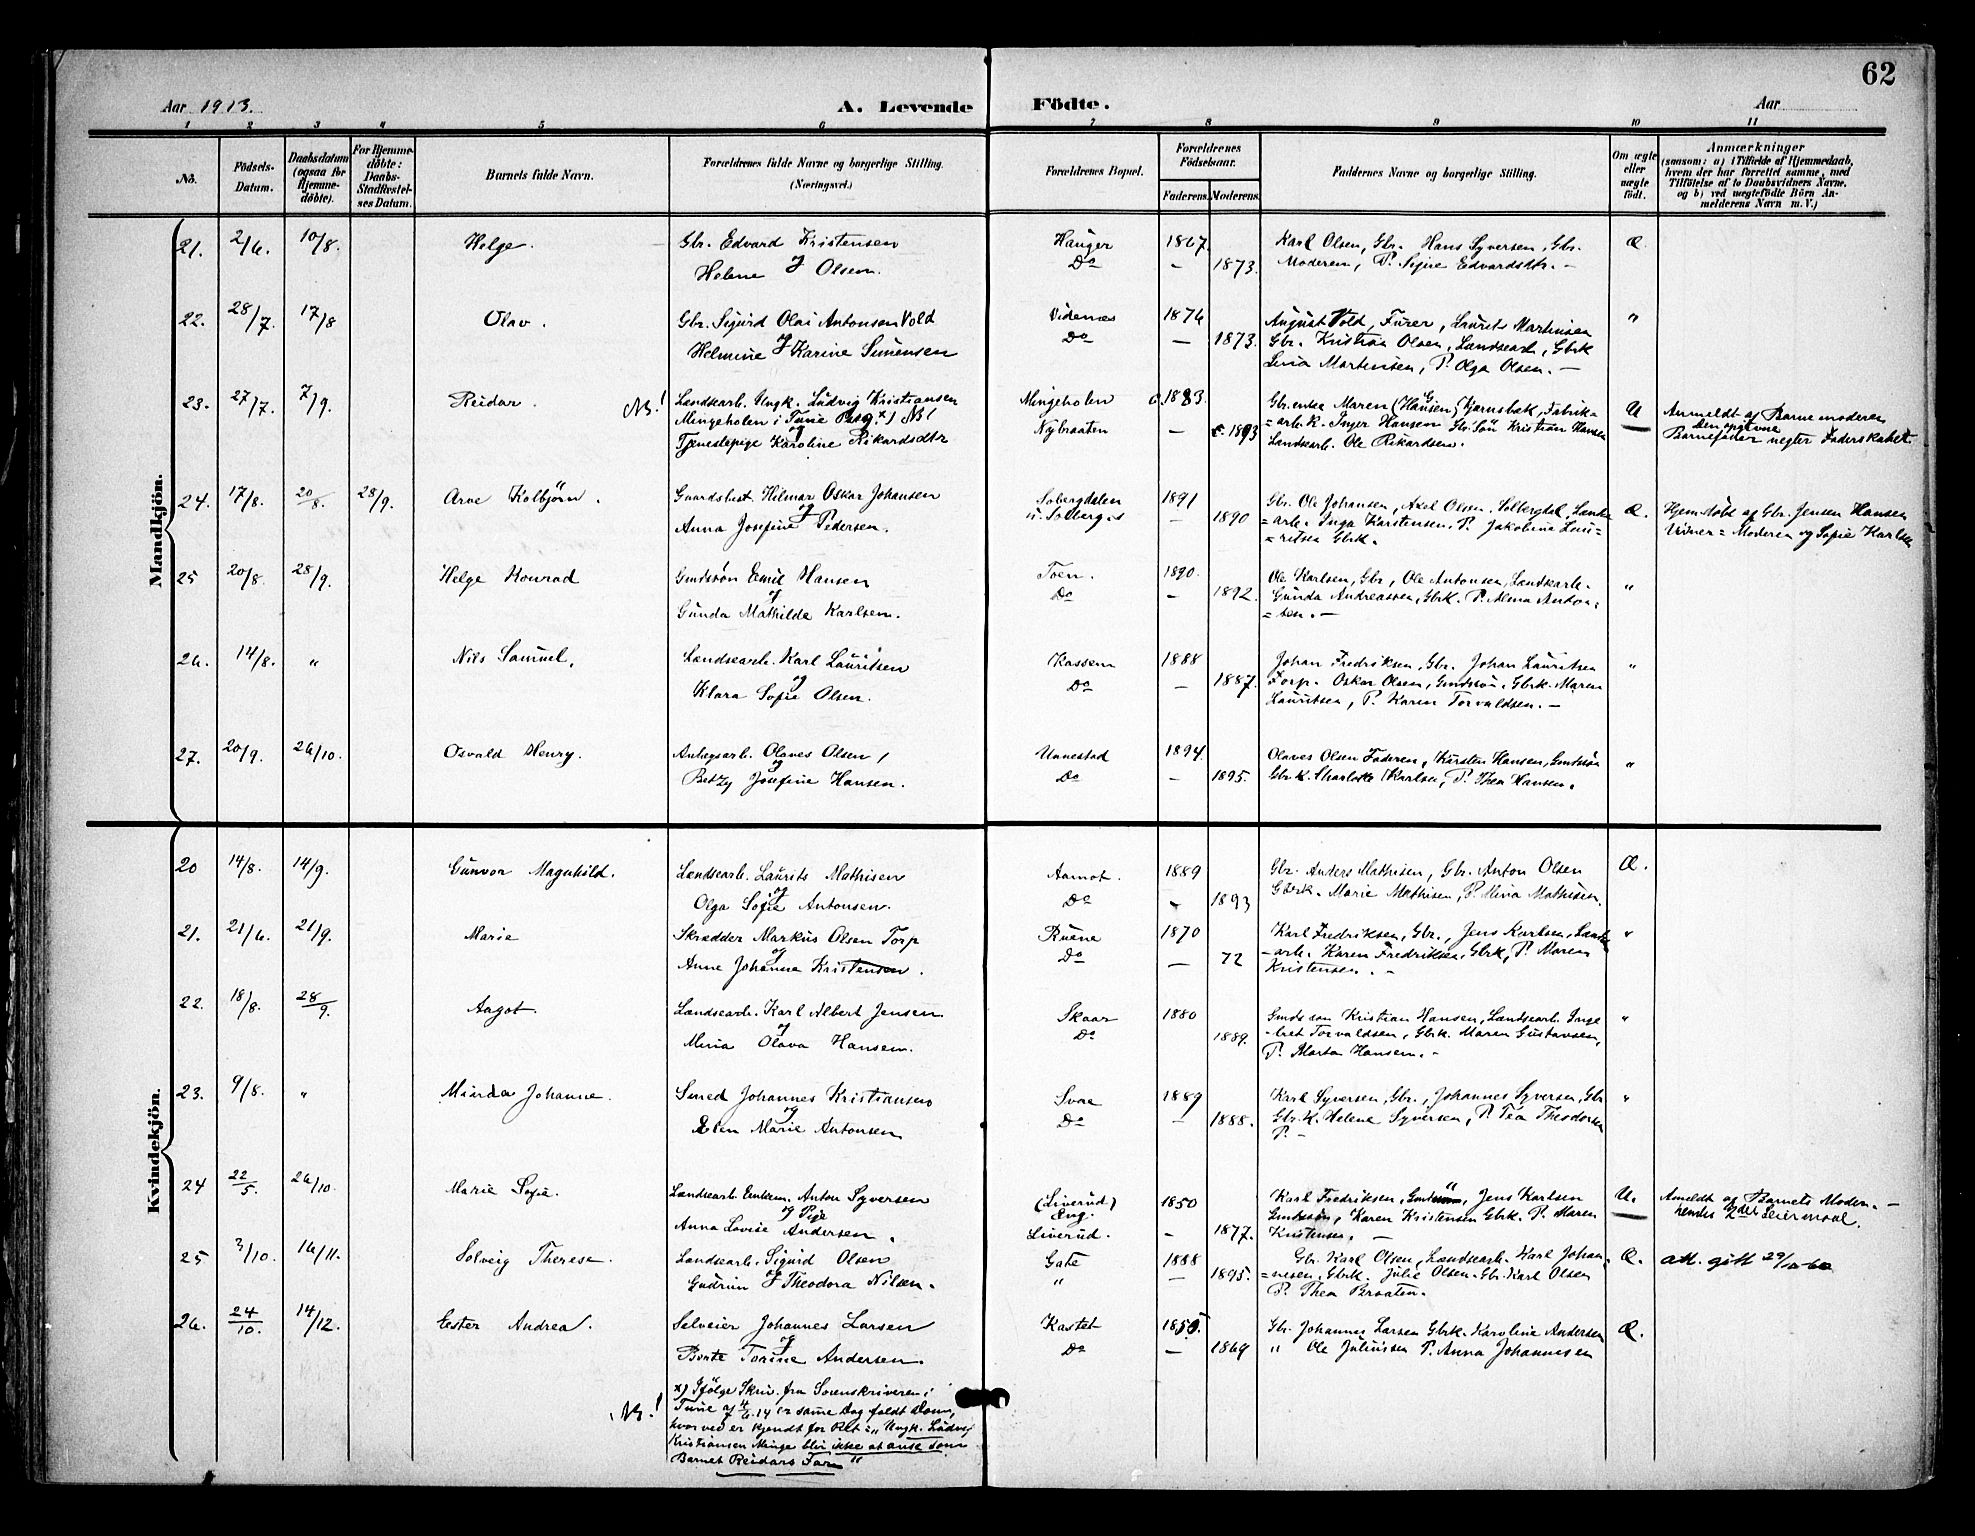 62
Aar 1913.
A. Levende Födte.
Aar
1 2 3 4 5 6 7 8 9 10 11
No.
Födsels-Datum.
Daabsdatum (ogsaa for Hjemme-döbte).
For Hjemme-döbte: Daabs-Stadfæstel-ses Datum.
Barnets fulde Navn.
Forældrenes fulde Navne og borgerlige Stilling.
(Næringsvei.)
Forældrenes Bopæl.
Forældrenes Födselsaar.
Faderens. Moderens.
Faddernes Navne og borgerlige Stilling.
Om ægte eller uægte födt.
Anmærkninger
(saasom: a) i Tilfælde af Hjemmedaab,
hvem der har forrettet samme, med
Tilföielse af to Daabsvidners Navne.
og b) ved uægtefödte Börn An-
melderens Navn m. V.)
Mandkjön.
21. 2/6. 10/8. Helge. Gbr. Edvard Kristensen Hauger 1867. Karl Olsen, Gbr. Hans Syversen, Gbr. Æ.
Helene og Olsen. Do — 1873. Moderen, P. Signe Edvardsdtr. —
22. 28/7. 17/8 Olav. Gbr. Sigurd Olai Antonsen Vold Videnes 1876 August Vold, Furer, Laurits Martinsen "
Helmine og Karine Simensen Do — 1873. Gbr. Kristian Olsen, Landsearb., Gbrk
Lina Martinsen, P. Olga Olsen. —
23. 27/7. 7/9. Reidar. NB! Landsearb. Ungk. Ludvig Kristiansen Mingeholen 1883. Gbr.enke Maren (Hansen) Kjærnsbæk, Fabrik- U Anmeldt af Barnemoderen
Mingeholen i Tune x) NB! =arb. K. Inger Hansen Gb.Søn Kristian Hansen Den opgivne
og Tjenestepige Karoline Rikardsdtr Nybraaten — 1893 Landsarb. Ole Rikardsen. Barnefader negter Faderskabet.
24. 17/8. 20/8. 28/9. Arve Kolbjørn. Gaardsbest. Hilmar Oskar Johansen Solbergdalen 1891 Gbr. Ole Johansen, Axel Olsen, Solbergdal, Lands Æ. Hjemdøbt af Gbr. Jensen Hansen
og Anna Josefine Pedersen. u. Solberg s — 1890 =arb. Inga Karstensen, P. Jakobine Lau= Vidner = Moderen og Sofie Karlsen
=ritsen Gbrk.
25 20/8. 28/9. Helge Konrad Gmdssøn Emil Hansen Toen. 1890. Ole Karlsen, Gbr, Ole Antonsen, Landsearb. "
og Gunda Mathilde Karlsen. Do — 1892. Gunda Andreassen, Gbrk. P. Alma Anton=
=sen. —
26. 14/8. " Nils Samuel. Landsearb. Karl Lauritsen Kassem 1888 Johan Fredriksen, Gbr. Johan Lauritsen "
og Klara Sofie Olsen. Do — 1887. Torp. Oskar Olsen, Gmdssøn, Gbrk. Maren
Lauritsen, P. Karen Torvaldsen. —
27. 20/9. 26/10. Osvald Henry. Anlægsarb. Olaves Olsen Unnestad 1894. Olaves Olsen Faderen, Kirsten Hansen, Gmdssøn "
og Betzy Josefine Hansen. Do — 1895. Gbr.k. Charlotte Karlsen, P. Thea Hansen.
Kvindekjön.
20 14/8. 14/9. Gunvor Magnhild. Landsearb. Laurits Mathisen Aamot. 1889 Gbr. Anders Mathisen, Gbr. Anton Olsen Æ.
og Olga Sofie Antonsen. Do — 1893 Gbrk. Marie Mathisen, P. Mina Mathisen.
21. 21/6. 21/9. Marie Skrædder Markus Olsen Torp Ruene 1870 Karl Fredriksen, Gbr., Jens Karlsen, Lands "
og Anne Johanne Kristensen. Do — 72 =arb. Karen Fredriksen, Gbrk, P. Maren
Kristensen. —
22. 18/8. 28/9. Aagot. Landsearb. Karl Albert Jensen Skaar 1880 Gmdsson Kristian Hansen, Landsearb. Inge "
og Mina Olava Hansen. Do 1889. -bret Torvaldsen, Gbrk. Maren Gustavsen,
P. Marta Hansen. —
23. 9/8. " Minda Johanne. Smed Johannes Kristiansen Svae 1889 Karl Syversen, Gbr., Johannes Syversen, Gbr "
og Elen Marie Antonsen Do — 1888. Gbr.k. Helene Syversen, P. Tea Theodorsen
P. —
24 22/5. 26/10. Marie Sofie. Landsearb. Enkem. Anton Syversen (Liverud) Eng. 1850 Karl Fredriksen, Jens Karlsen U. Anmeldt af Barnets Moder. —
og Pige Gmdssøn, Karen Kristensen Gbrk. P. Maren hendes 2det Leiermaal.
Anna Lovise Andersen. Liverud. — 1877. Kristensen. —
25 3/10. 16/11. Solveig Therese. Landsearb. Sigurd Olsen Gate 1888 Gbr. Karl Olsen, Landsearb. Karl Johan= Æ. att. gift 29/10-60
Gudrun og Theodora Nilsen. " — 1895. =nesen, Gbrk. Julie Olsen. Gbr. Karl Olsen
P. Thea Braaten.
26. 24/10. 14/12. Ester Andrea. Selveier Johannes Larsen Kastet 1855. Gbr. Johannes Larsen Gbrk. Karoline Andersen Æ.
og Berte Torine Andersen. Do — 1869 " Ole Juliussen P. Anna Johannesen
NB! x) Ifølge Skriv. fra Sorenskriveren i
Tune af 4/6. 14 er samme Dag faldt Dom,
hvorved er kjendt for Ret: „Ungk. Ludvig
Kristiansen Minge blir ikke at anse som
Barnet Reidars Far"